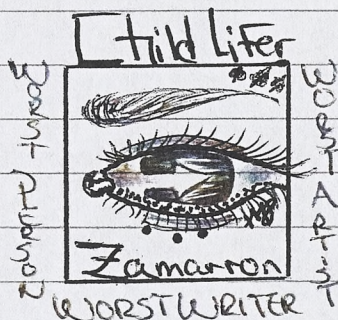 Child Lifer
WORST PERSON
WORST ARTIST
Zamarron
WORST WRITER